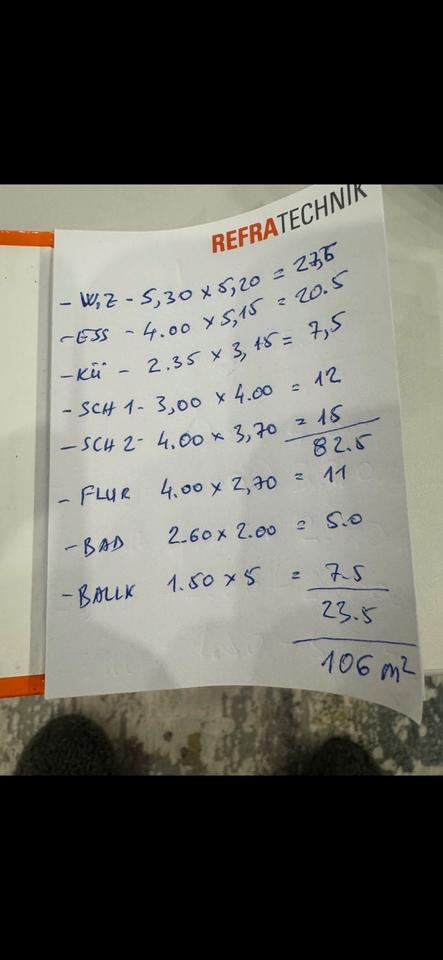 REFRATECHNIK
- W,Z - 5,30 x 5,20 = 27,5
- ESS - 4.00 x 5,15 = 20.5
- KÜ - 2.35 x 3,15 = 7,5
- SCH 1- 3,00 x 4.00 = 12
- SCH 2- 4.00 x 3,70 = 15
82.5
- FLUR 4.00 x 2,70 = 11
- BAD 2.60 x 2.00 = 5.0
- BALLK 1.50 x 5 = 7.5
23.5
106 m²